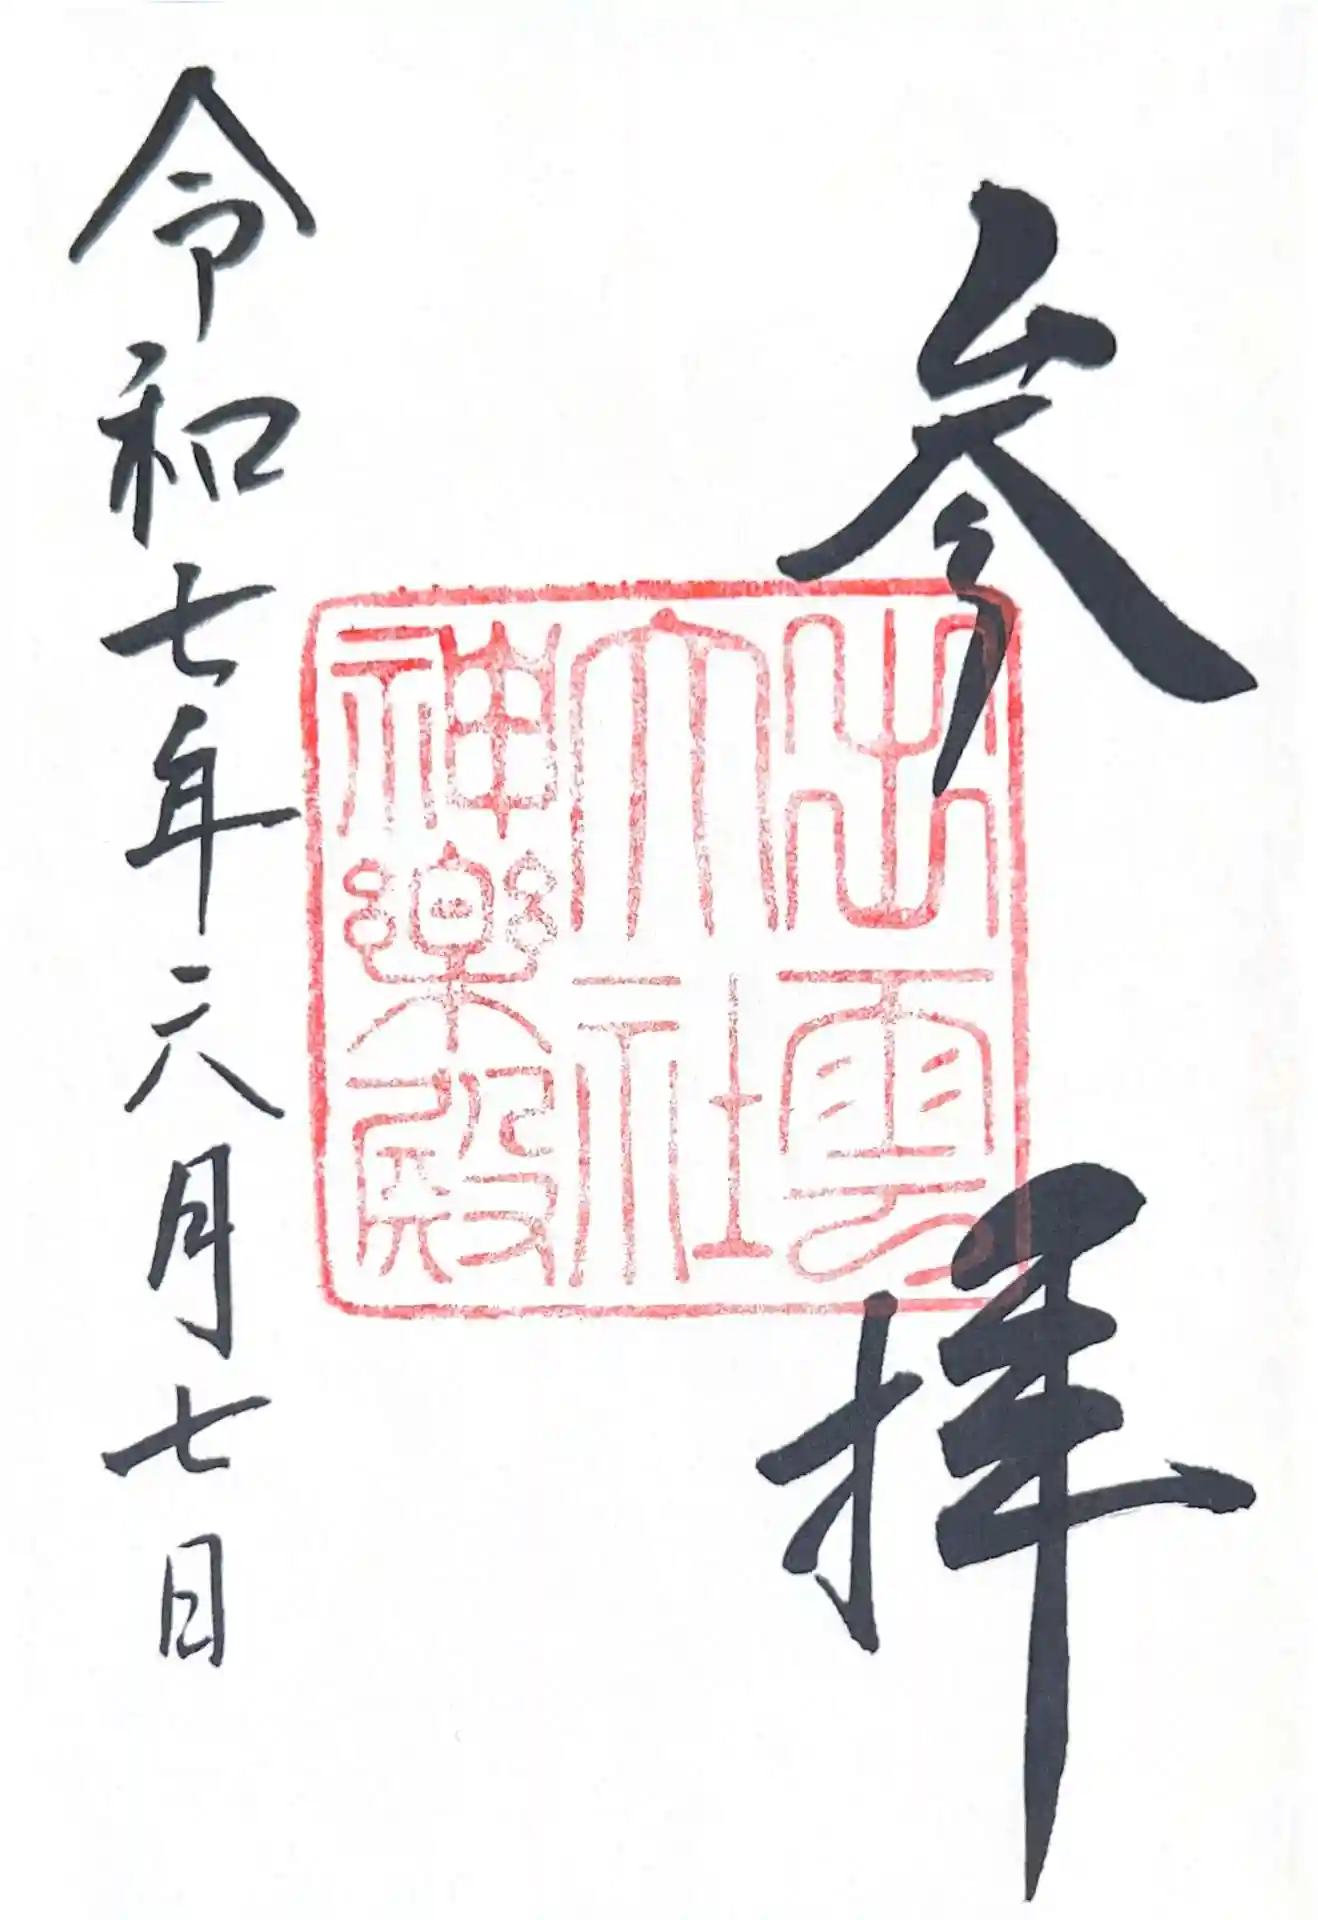 参拝
出雲
大社
神楽殿
令和七年六月七日